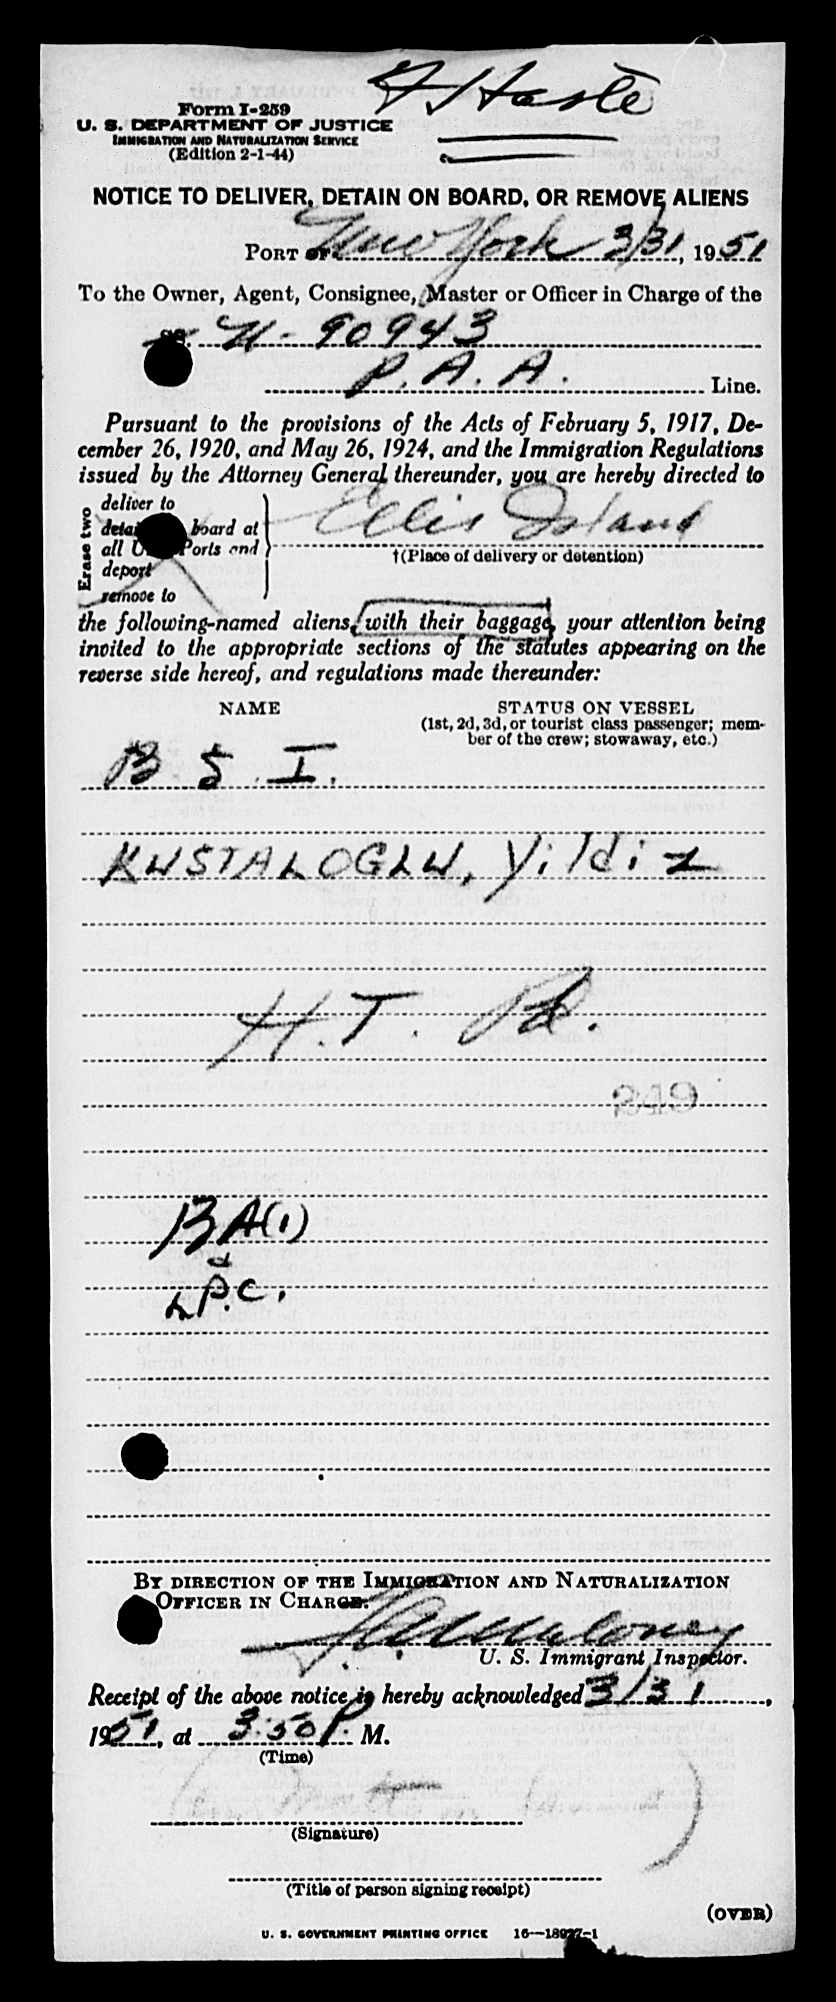 Form I-259
U. S. DEPARTMENT OF JUSTICE
IMMIGRATION AND NATURALIZATION SERVICE
(Edition 2-1-44)
NOTICE TO DELIVER, DETAIN ON BOARD, OR REMOVE ALIENS
PORT OF New York 3/31, 1951
To the Owner, Agent, Consignee, Master or Officer in Charge of the
SS. N-90943
P.A.A. Line.
Pursuant to the provisions of the Acts of February 5, 1917, De-
cember 26, 1920, and May 26, 1924, and the Immigration Regulations
issued by the Attorney General thereunder, you are hereby directed to
Erase two
deliver to
board at
all Ports and
deport
remove to
Ellis Island
†(Place of delivery or detention)
the following-named aliens, with their baggage, your attention being
invited to the appropriate sections of the statutes appearing on the
reverse side hereof, and regulations made thereunder:
NAME STATUS ON VESSEL
(1st, 2d, 3d, or tourist class passenger; mem-
ber of the crew; stowaway, etc.)
B. S. I.
KUSTALOGLU, Yildiz
H.T. Pd.
249
BA(1)
&
L.P.C.
BY DIRECTION OF THE IMMIGRATION AND NATURALIZATION
OFFICER IN CHARGE.
Maloney
U. S. Immigrant Inspector.
Receipt of the above notice is hereby acknowledged 3/31,
1951, at 3:50 P. M.
(Time)
(Signature)
(Title of person signing receipt)
(OVER)
U. S. GOVERNMENT PRINTING OFFICE 16—18927-1